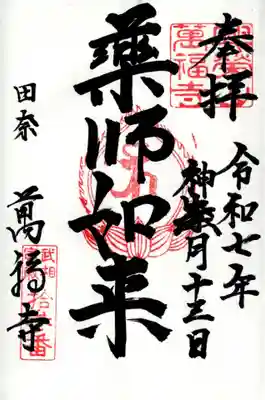 奉拝
令和七年
神無月十三日
薬師如来
田奈
萬福寺
萬福寺
武相